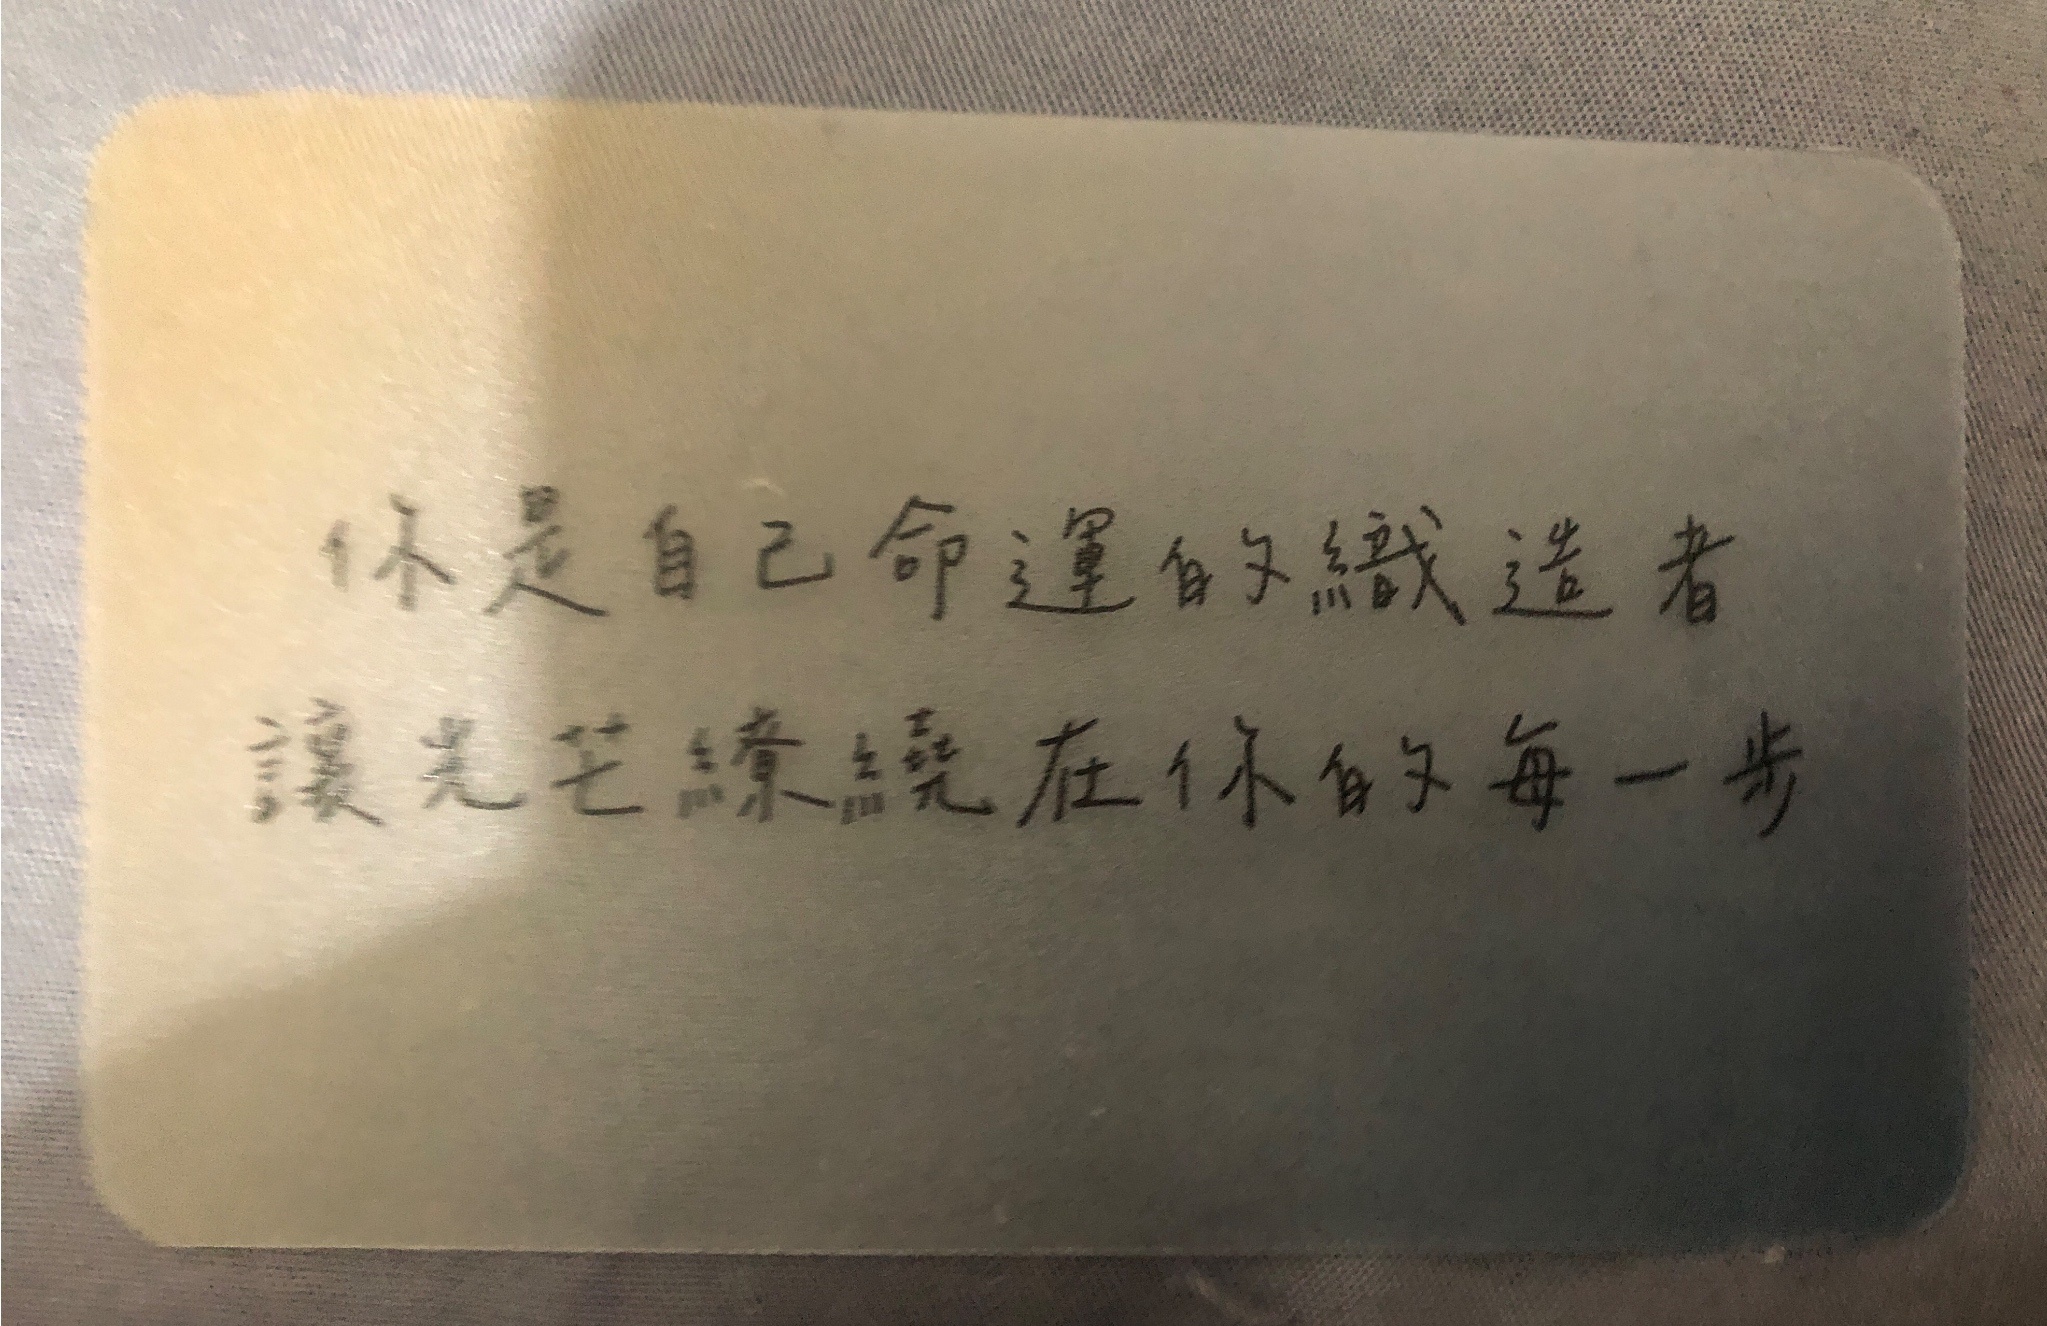 你是自己命運的織造者
讓光芒繚繞在你的每一步